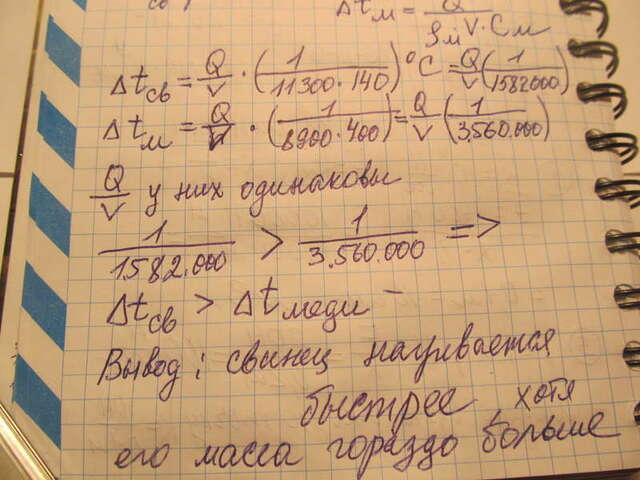 Δtм = Q / ρмV·Cм
Δtсв = Q/V · (1 / 11300·140) °C = Q/V (1 / 1582000)
Δtм = Q/V · (1 / 8900·400) = Q/V (1 / 3.560.000)
Q/V у них одинаковы
1 / 1582.000 > 1 / 3.560.000 =>
Δtсв > Δtмеди
Вывод: свинец нагревается
быстрее, хотя
его масса гораздо больше